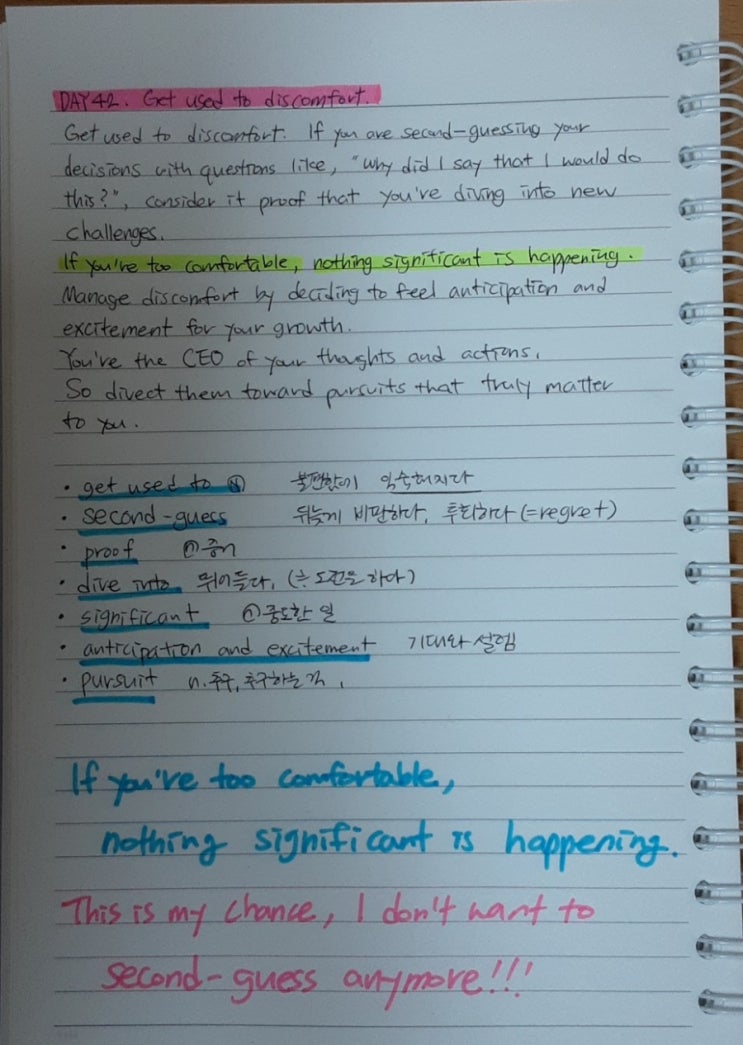 DAY 42. Get used to discomfort.
Get used to discomfort. If you are second-guessing your
decisions with questions like, "Why did I say that I would do
this?", consider it proof that you're diving into new
challenges.
If you're too comfortable, nothing significant is happening.
Manage discomfort by deciding to feel anticipation and
excitement for your growth.
You're the CEO of your thoughts and actions.
So divect them toward pursuits that truly matter
to you.
• get used to ⓝ 불편함에 익숙해지다
• second-guess 뒤늦게 비판하다, 후회하다 (=regret)
• proof ⓝ 증거
• dive into 뛰어들다, (≒ 도전을 하다)
• significant ⓝ 중요한 일
• anticipation and excitement 기대와 설렘
• pursuit n. 추구, 추구하는 것.
If you're too comfortable,
nothing significant is happening.
This is my chance, I don't want to
second-guess anymore!!!